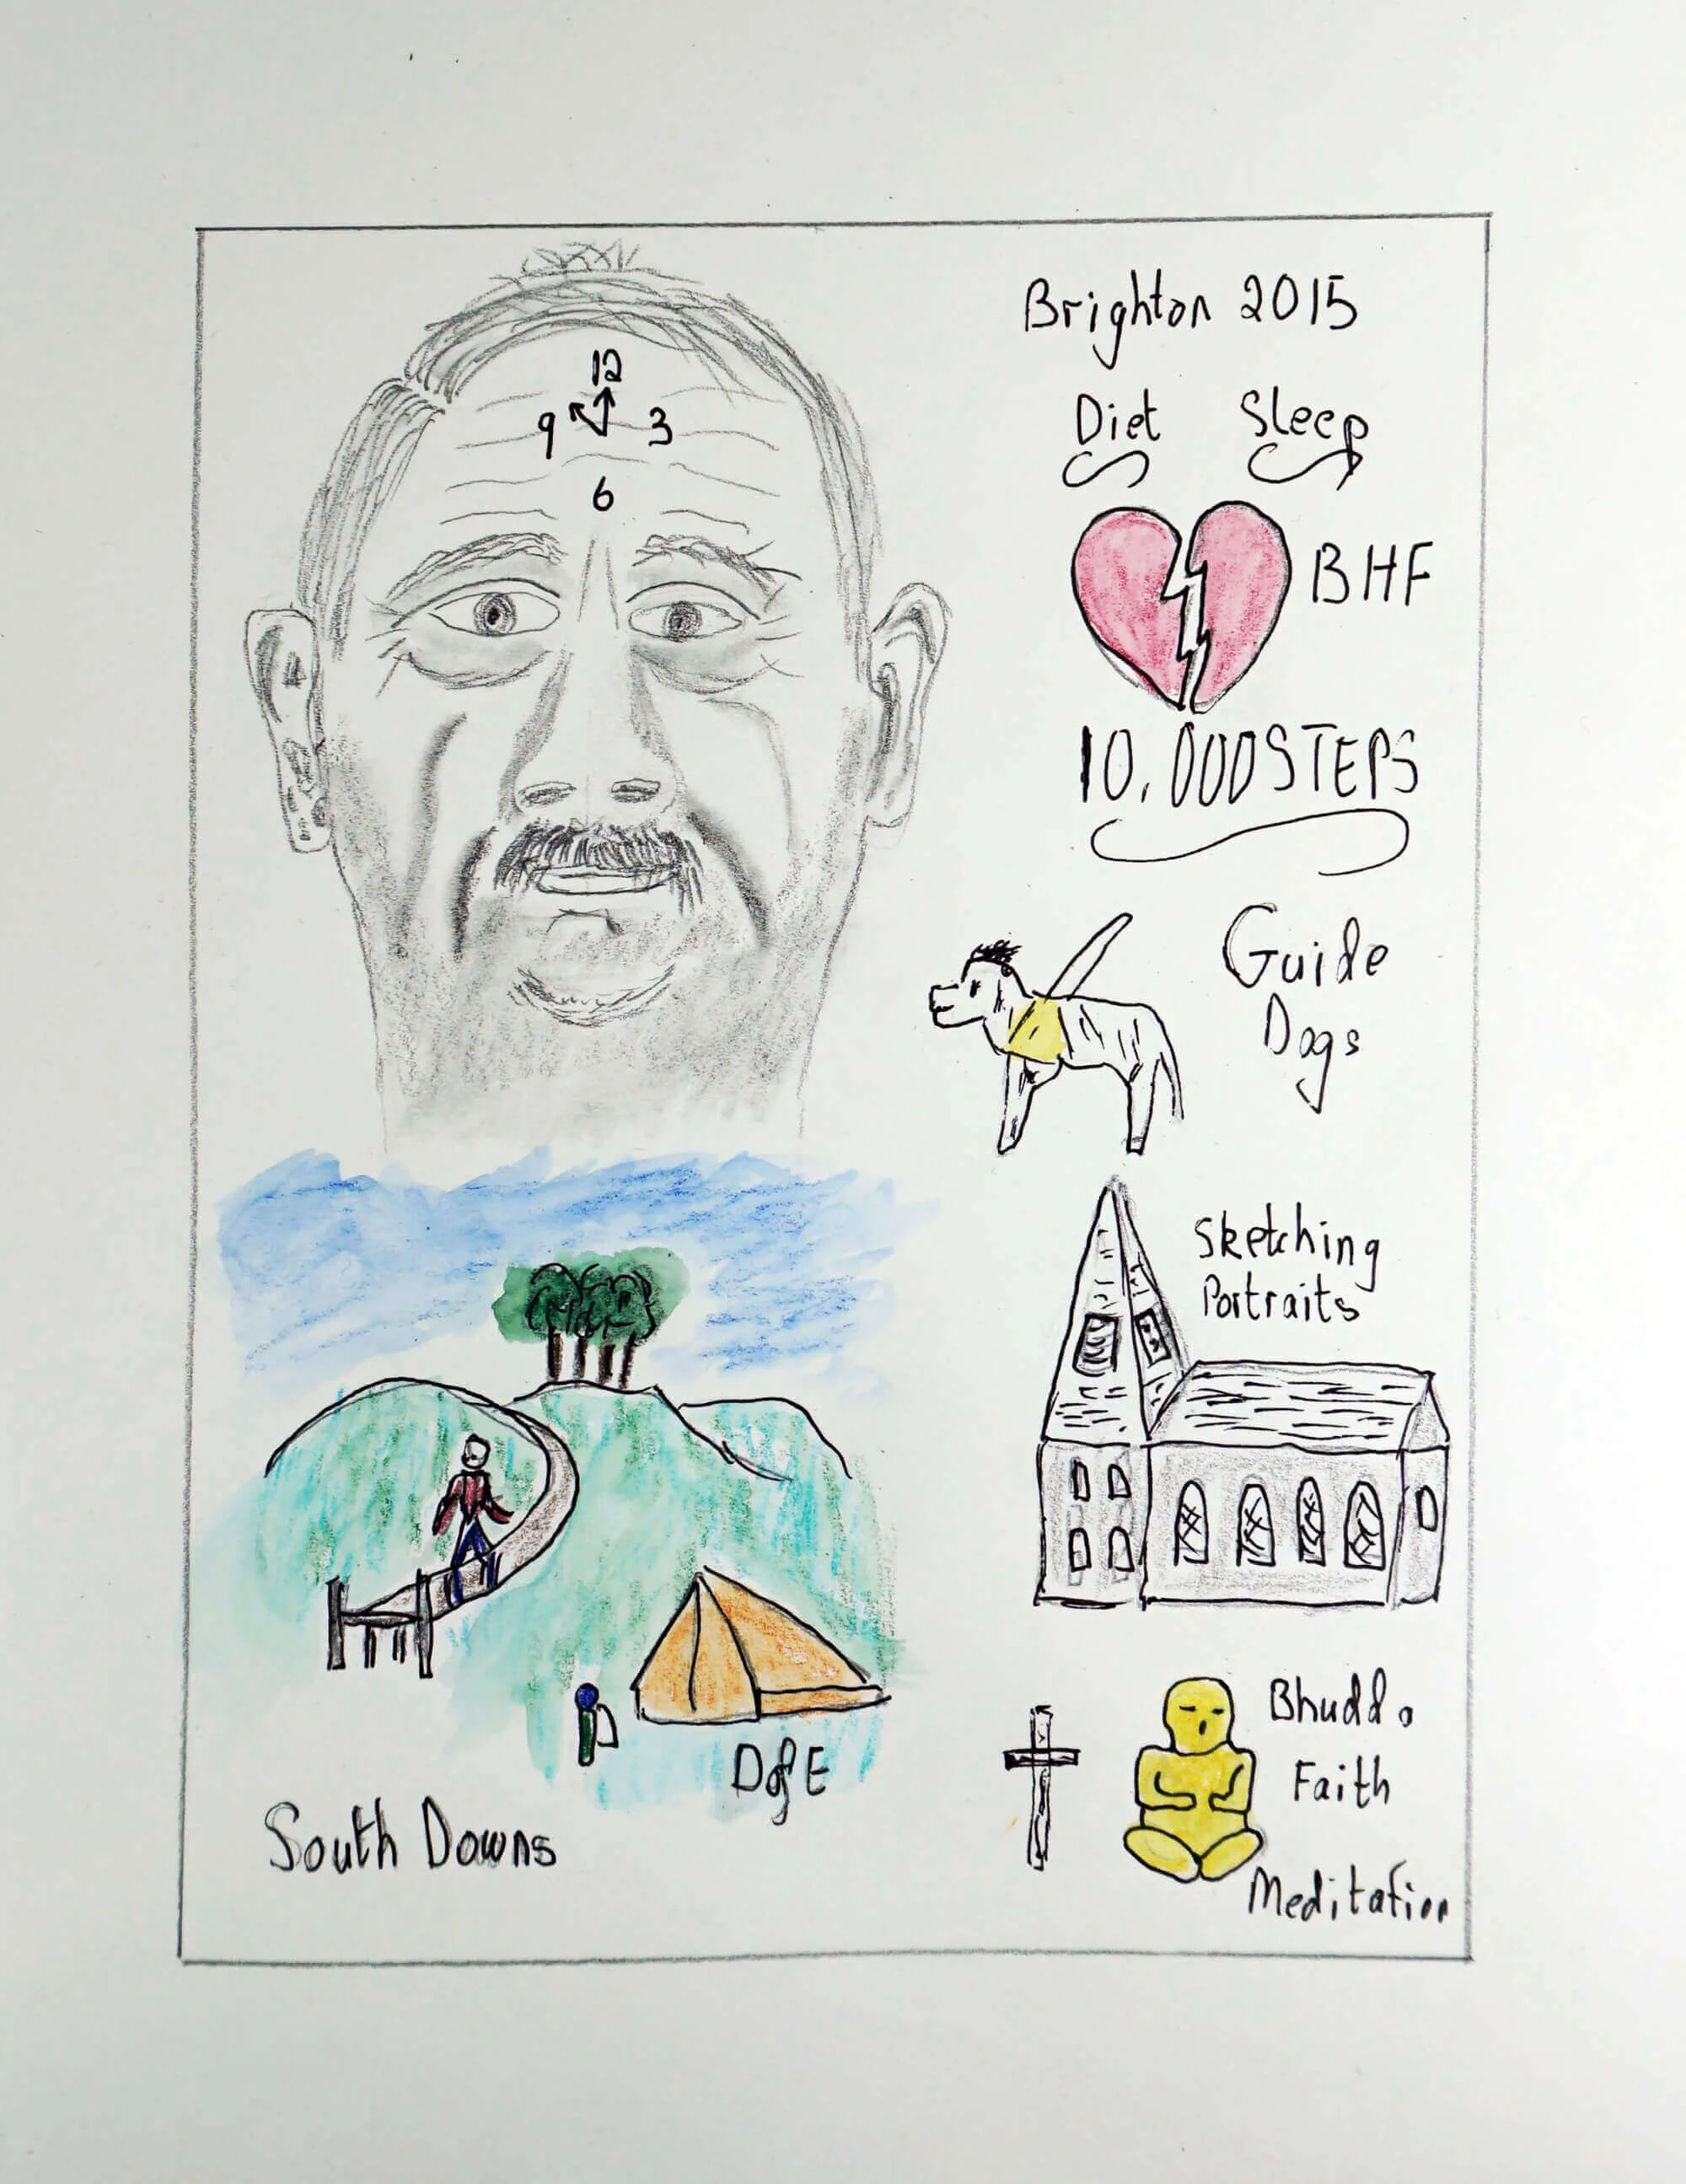 Brighton 2015
Diet Sleep
12
9 3
6
BHF
10,000 STEPS
Guide
Dogs
Sketching
Portraits
Bhudda
Faith
Meditation
DofE
South Downs